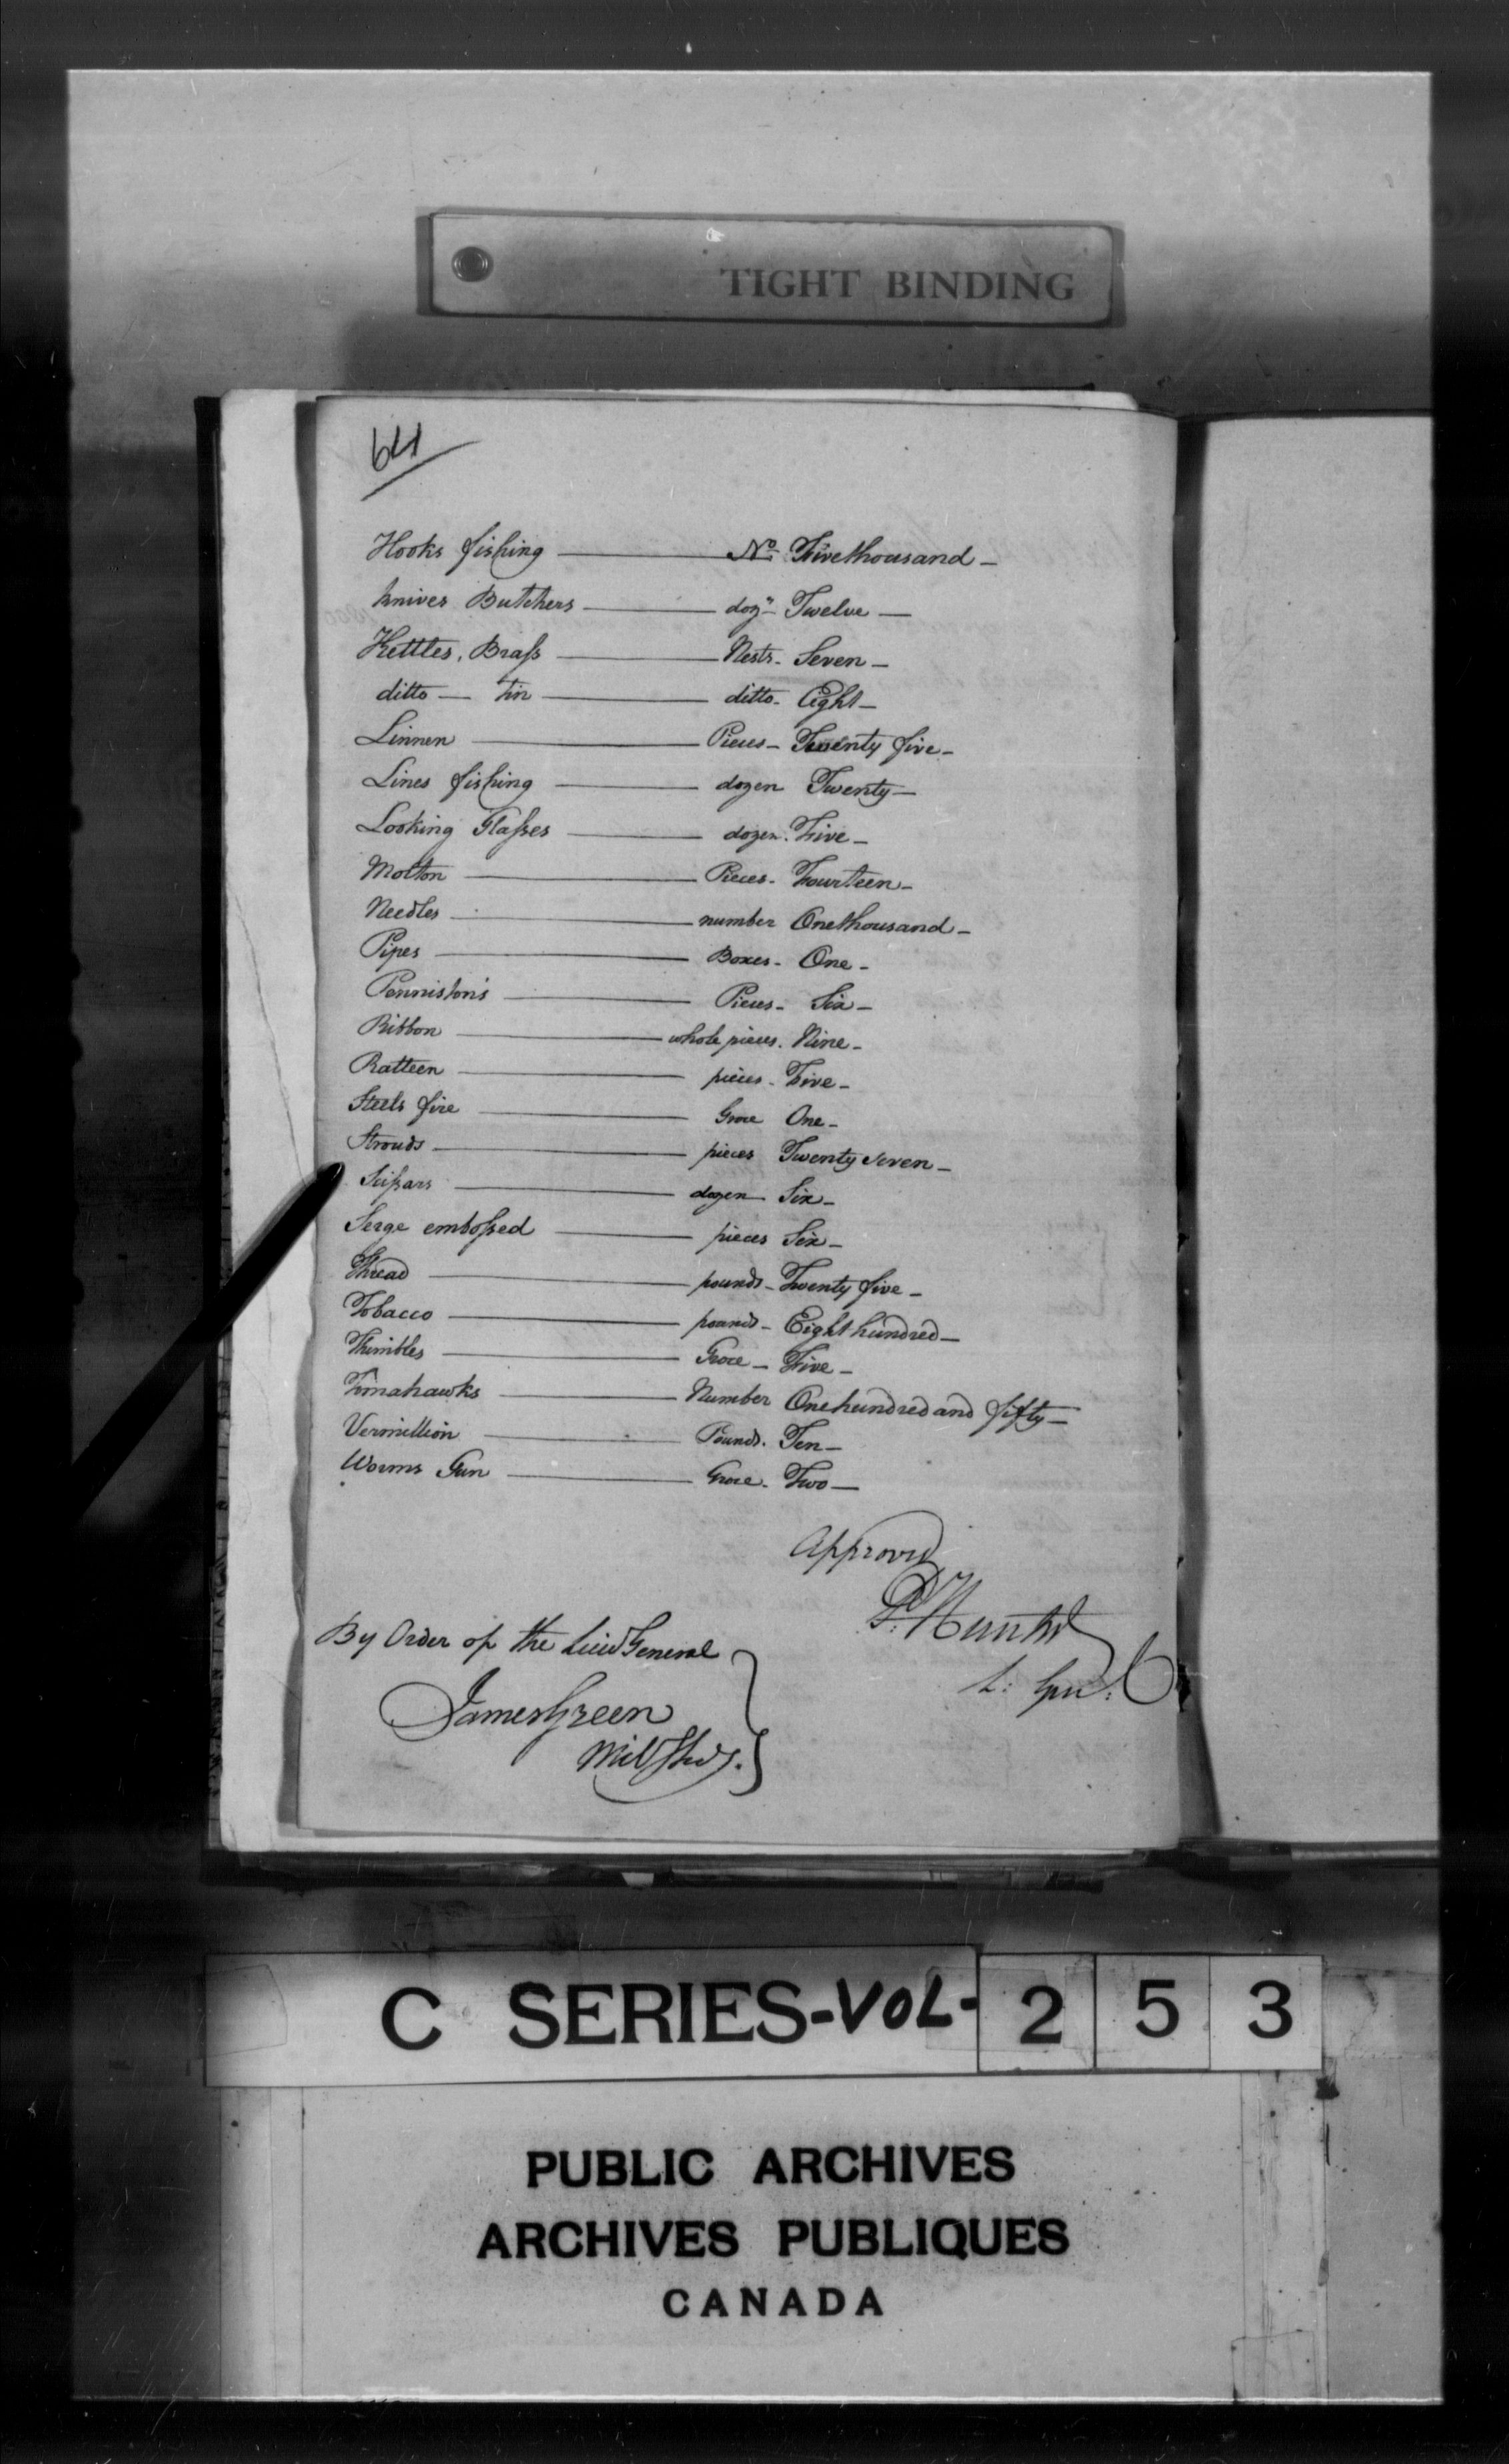 TIGHT BINDING
641
Hooks fishing — No. Five thousand —
knives Butchers — dozn. Twelve —
Kettles, Brass — Nests - Seven —
ditto — tin — ditto - Eight —
Linnen — Pieces - Twenty five —
Lines fishing — dozen Twenty —
Looking Glasses — dozen. Five —
Molton — Pieces - Fourteen —
Needles — number One thousand —
Pipes — Boxes - One —
Penniston's — Pieces - Six —
Ribbon — whole pieces. Nine —
Ratteen — pieces - Five —
Steels fire — Groce One —
Strouds — pieces Twenty seven —
Scissars — dozen Six —
Serge embossed — pieces Six —
Thread — pounds - Twenty five —
Tobacco — pounds - Eight hundred —
Thimbles — Groce - Five —
Tomahawks — Number One hundred and fifty —
Vermillion — Pounds. Ten —
Worms Gun — Groce - Two —
Approved
P. Hunter
L: Gen:
By Order of the Lieut General
James Green
Mil Secy.
C SERIES-VOL- 2 5 3
PUBLIC ARCHIVES
ARCHIVES PUBLIQUES
CANADA